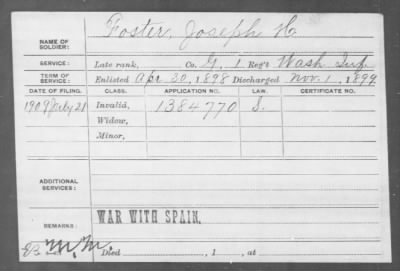 NAME OF SOLDIER: Foster, Joseph H.
SERVICE: Late rank, Co. G, 1 Reg't Wash Inf.
TERM OF SERVICE: Enlisted Apr 30, 1898 Discharged Nov. 1, 1899
DATE OF FILING. CLASS. APPLICATION NO. LAW. CERTIFICATE NO.
1908 July 21 Invalid, 1384770 S.
Widow,
Minor,
ADDITIONAL SERVICES:
REMARKS: WAR WITH SPAIN.
M.M. Died , 1 , at